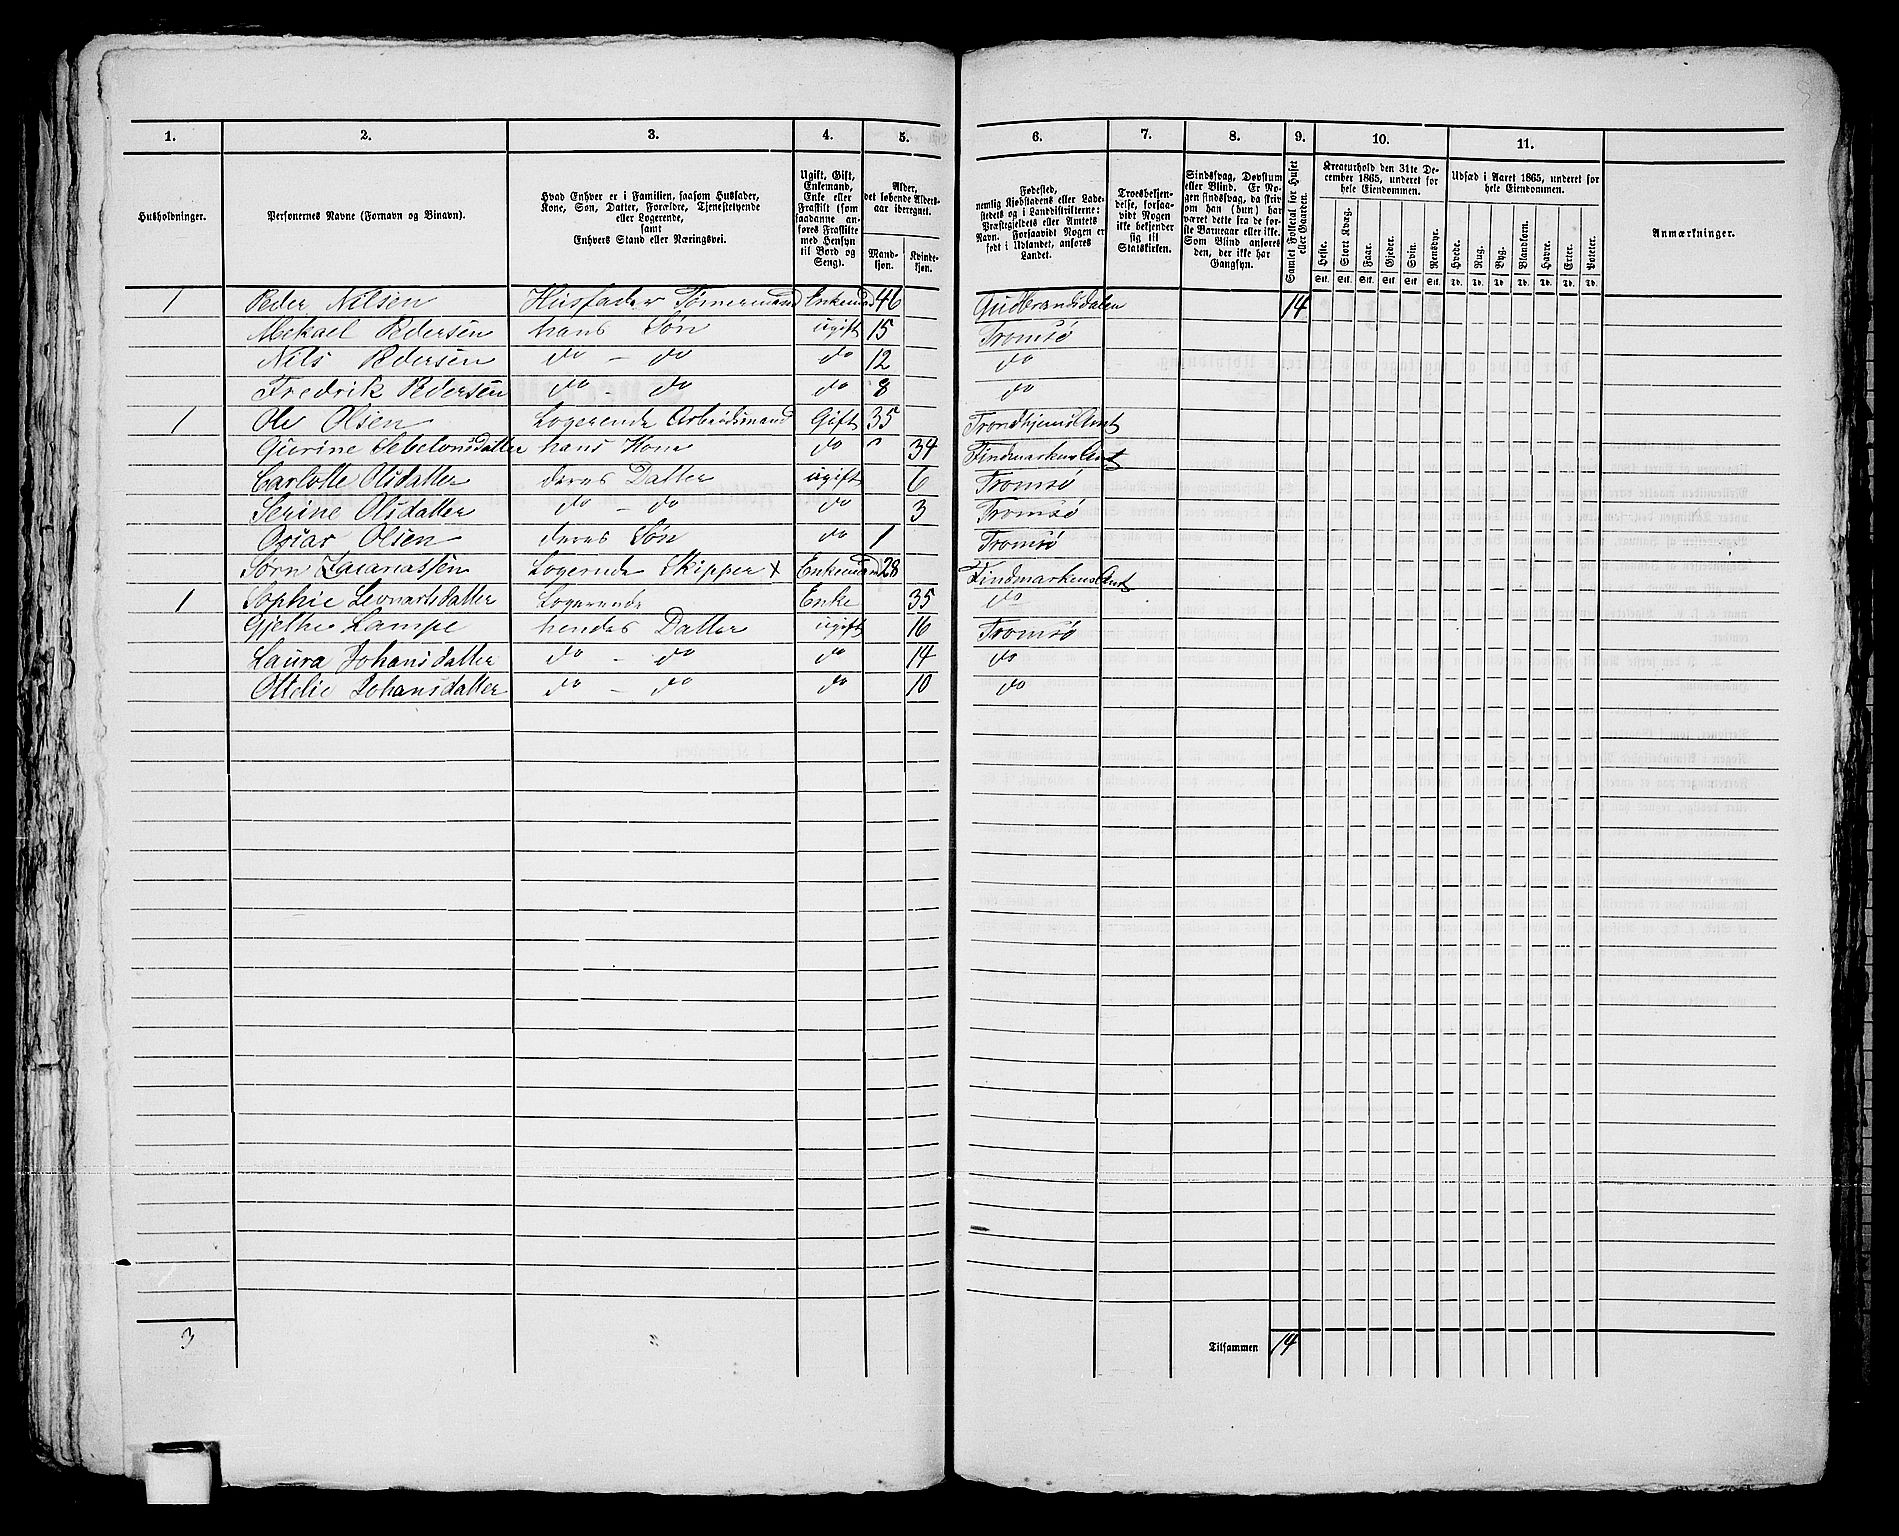 1. 2. 3. 4. 5. 6. 7. 8. 9. 10. 11.
Husholdninger.
Personernes Navne (Fornavn og Binavn).
Hvad Enhver er i Familien, saasom Husfader,
Kone, Søn, Datter, Forældre, Tjenestetyende
eller Logerende,
samt
Enhvers Stand eller Næringsvei.
Ugift, Gift,
Enkemand,
Enke eller
Fraskilt (som
saadanne an-
føres Fraskilte
med Hensyn
til Bord og
Seng).
Alder,
det løbende Alders-
aar iberegnet.
Mand-
kjøn.
Kvinde-
kjøn.
Fødested,
nemlig Kjøbstadens eller Lade-
stedets og i Landdistrikterne:
Præstegjeldets eller Amtets
Navn. Forsaavidt Nogen er
født i Udlandet, anføres
Landet.
Troesbekjen-
delse, forsaa-
vidt Nogen
ikke bekjender
sig til
Statskirken.
Sindssvag, Døvstum
eller Blind. Er No-
gen sindssvag, da skriv
om han (hun) har
været dette fra de før-
ste Barneaar eller ikke.
Som Blind anføres
den, der ikke har
Gangsyn.
Samlet Folketal for Huset
eller Gaarden.
Kreaturhold den 31te De-
cember 1865, underet for
hele Eiendommen.
Heste. Stort Kvæg. Faar. Gjeder. Svin. Rensdyr.
Stk. Stk. Stk. Stk. Stk. Stk.
Udsæd i Aaret 1865, underet for
hele Eiendommen.
Hvede. Rug. Byg. Blandkorn. Havre. Erter. Poteter.
Td. Td. Td. Td. Td. Td. Td.
Anmærkninger.
1 Peder Nilsen Husfader Tømermand Enkemand 46 Gudbrandsdalen 14
Mekael Pedersen hans Søn ugift 15 Tromsø
Nils Pedersen do - do do 12 do
Fredrik Pedersen do - do do 8 do
1 Ole Olsen Logerende Arbeidsmand Gift 35 Trondhjems Amt
Gurine hans Kone do " 34 Findmarkens Amt
Carlotte Olsdatter deres Datter ugift 6 Tromsø
Serine Olsdatter do - do do 3 Tromsø
Oscar Olsen deres Søn do 1 Tromsø
Sørn Zacariassen Logernde Skipper x Enkemand 28 Findmarkens Amt
1 Sophie Leonartsdatter Logerende Enke 35 do
Gjethe Lampe hendes Datter ugift 16 Tromsø
Laura Johansdatter do - do do 14 do
Ottelie Johansdatter do - do do 10 do
3 Tilsammen 14